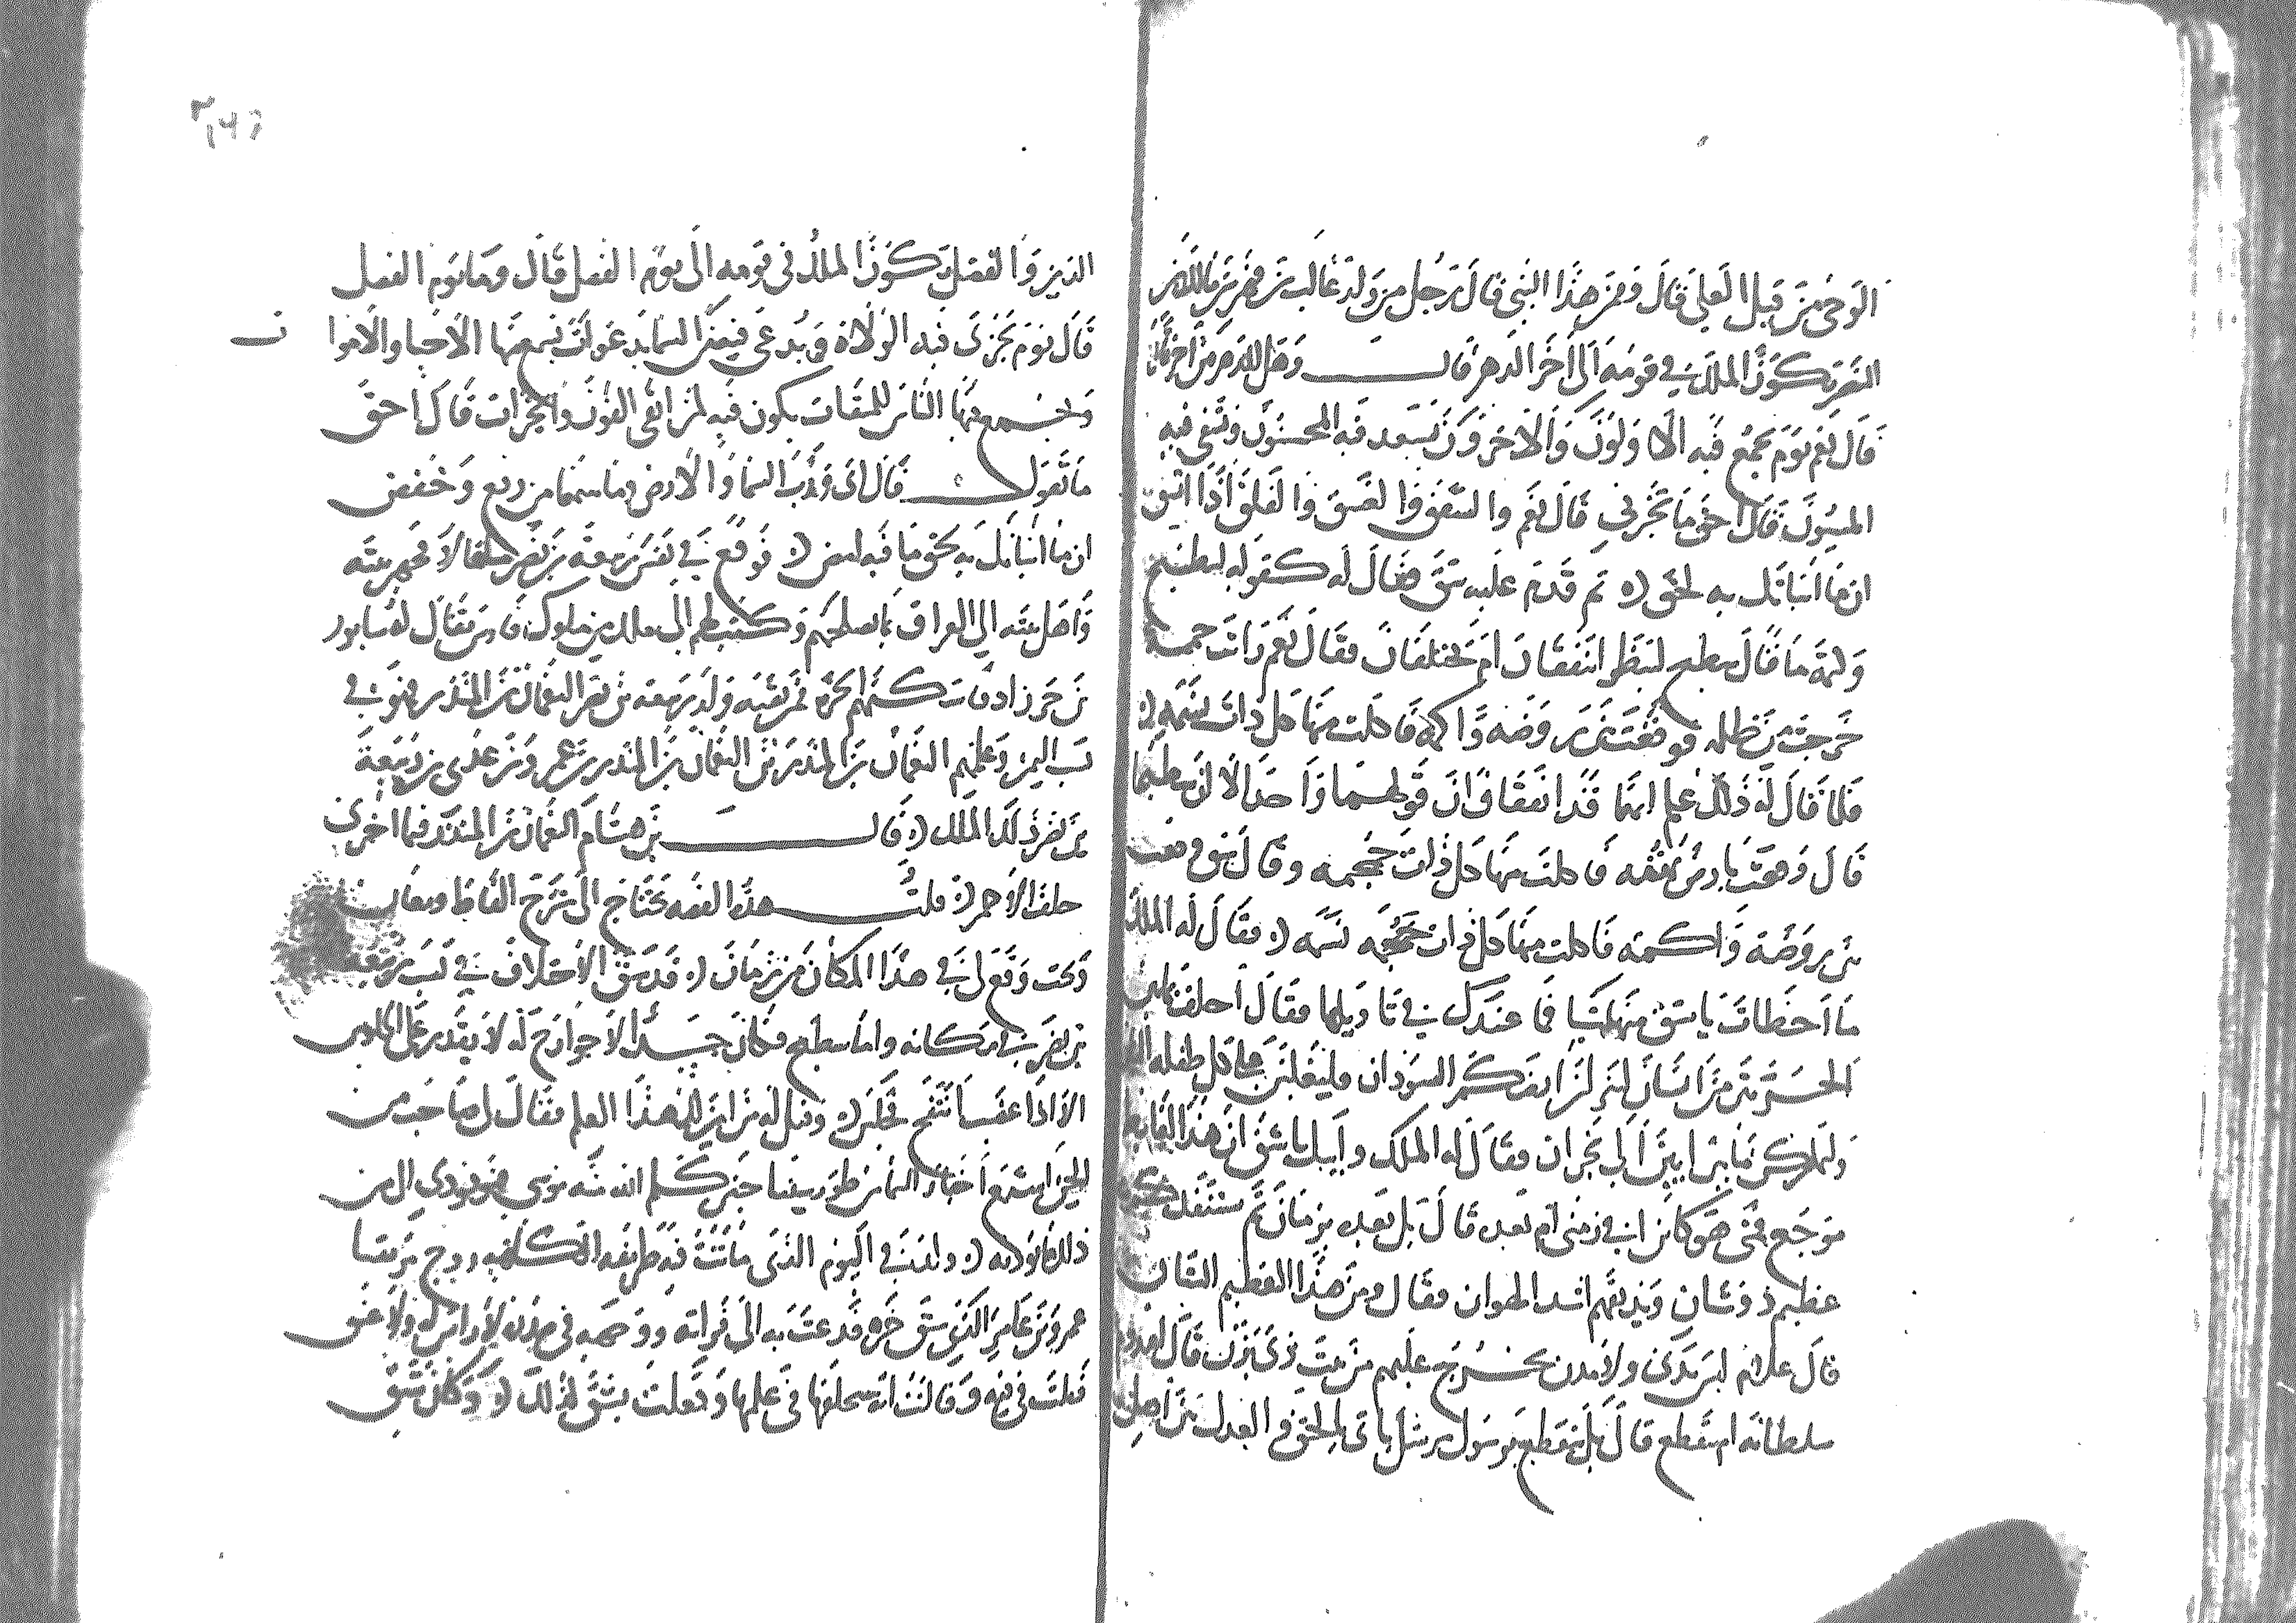 الوحي من قبل العلي قال وممن هذا النبي قال رجل من ولد غالب بن فهر بن مالك بن
النضر يكون الملك في قومه الى اخر الدهر قال وهل للدهر من اخر
قال نعم يوم يجمع فيه الاولون والاخرون يسعد فيه المحسنون ويشقى فيه
المسيون قال احق ما تخبرني قال نعم والشفق والغسق والفلق اذا اتسق
ان ما انباتك به لحق ثم قدم عليه شق فقال له كقوله لسطيح
وكتمه ما قال سطيح لينظر ايتفقان ام يختلفان فقال نعم رايت حممه
خرجت من ظلمه فوقعت بين روضه واكمه فاكلت منها كل ذات نسمه
فلما قال له ذلك علم انهما قد اتفقا وان قولهما واحد الا ان سطيحا
قال وقعت بارض تهمه فاكلت منها كل ذات جمجمه وقال شق وقعت
بين روضه واكمه فاكلت منها كل ذات نسمه فقال له الملك
ما اخطات يا شق منها شيا فما عندك في تاويلها فقال احلف بما بين
الحرتين من انسان لينزلن ارضكم السودان وليغلبن على كل طفله البنان
وليملكن ما بين ابين الى نجران فقال له الملك وابيك يا شق ان هذا لغايظ
موجع فمتى هو كاين افي زمني ام بعده قال بل بعده بزمان ثم يستنقذكم
عظيم ذو شان ويذيقهم اشد الهوان فقال ومن هذا العظيم الشان
قال غلام ليس بدني ولا مدن يخرج عليهم من بيت ذي يزن قال افيدوم
سلطانه ام ينقطع قال بل ينقطع برسول مرسل ياتي بالحق والعدل بين اهل
الدين والفضل يكون الملك في قومه الى يوم الفصل قال وما يوم الفصل
قال يوم تجزى فيه الولاه ويدعى فيه من السما بدعوات يسمع منها الاحيا والاموا ت
ويجمع فيها الناس للميقات يكون فيه لمن اتقى الفوز والخيرات قال احق
ما تقول قال اي ورب السما والارض وما بينهما من رفع وخفض
ان ما انباتك به لحق ما فيه امض فوقع في نفس ربيعه بن نصر ما قالا فجهز بنيه
واهل بيته الى العراق بما يصلحهم وكتب لهم الى ملك من ملوك فارس يقال له سابور
بن خرزاد فاسكنهم الحيره فمن بقيه ولد ربيعه بن نصر النعمان بن المنذر فهو في
نسب اليمن وعلمهم النعمان بن المنذر بن النعمان بن المنذر بن عمرو بن عدي بن ربيعة
بن نصر ذلك الملك قال بن هشام النعمان بن المنذر فيما اخبرني
خلف الاحمر قلت هذه القصه تحتاج الى شرح الفاظ ومعان
ذكرت وقع لي في هذا المكان من زمان قد سبق الاختلاف في نسب ربيعه
بن نصر في مكانه واما سطيح فكان جسدا لا جوارح له لا يقدر على الجلوس
الا اذا غضب انتفخ فجلس وقيل له من اين لك هذا العلم فقال لي صاحب من
الجن استمع اخبار السما من طور سينا حين كلم الله منه موسى فهو يودي الي من
ذلك ما يوديه وولد في اليوم الذي ماتت فيه طريفه الكاهنه زوج
عمرو بن عامر الذي سبق خبره قد عت به الى ووجهه في صدره لا راس له ولا عنق
فتفلت في فيه وقالت انه سيخلفها في علمها وفعلت بشق كذلك وكان شق